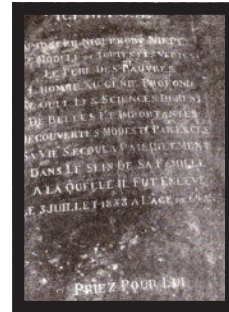 JOSEPH NICEPHORE NIEPCE
MODELE DE TOUTES LES VERTUS
LE PERE DES PAUVRES
L'HOMME AU GENIE PROFOND
A QUI LES SCIENCES DOIVENT
DE BELLES ET IMPORTANTES
DECOUVERTES MODESTE PAR EXCES
SA VIE S'ECOULA PAISIBLEMENT
DANS LE SEIN DE SA FAMILLE
A LA QUELLE IL FUT ENLEVÉ
LE 5 JUILLET 1833 A L'AGE DE
PRIEZ POUR LUI